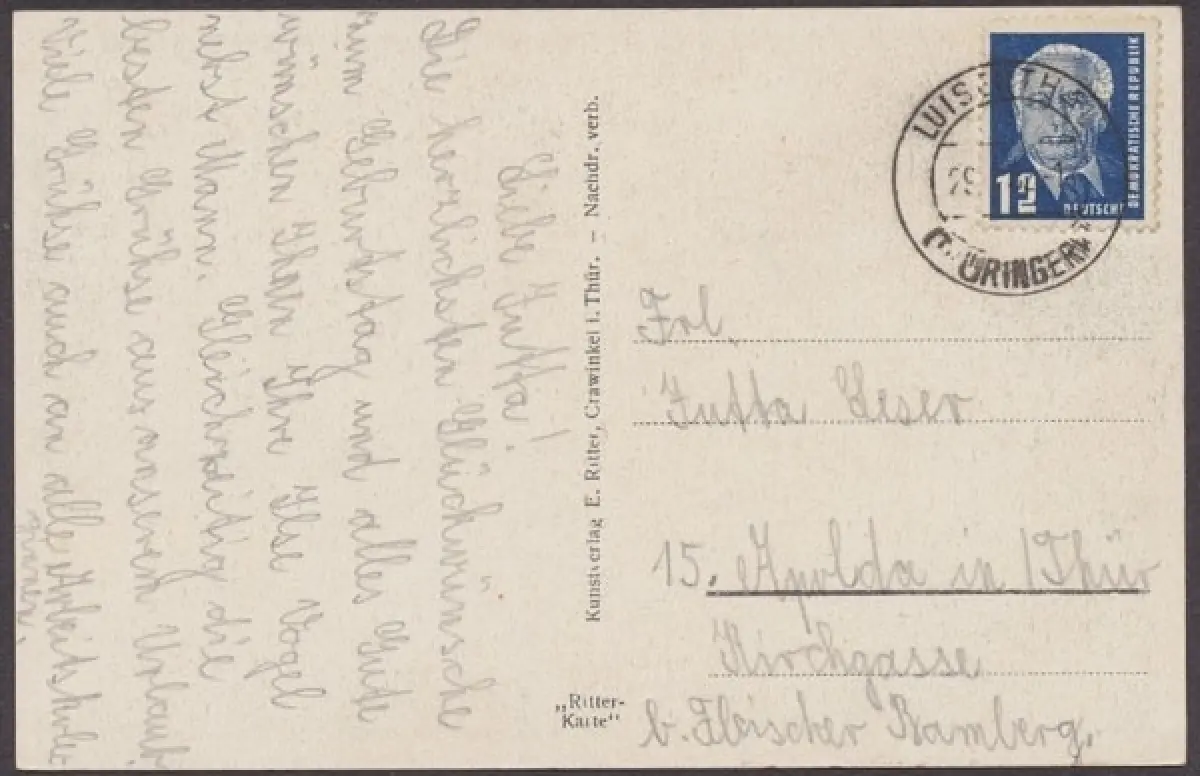 Liebe Jutta!
Die herzlichsten Glückwünsche
zum Geburtstag und alles Gute
wünschen Ihnen Ihre Ilse Vogel
nebst Mann. Gleichzeitig die
besten Grüsse aus unserem Urlaub
Viele Grüsse auch an alle
Kunstverlag E. Ritter, Crawinkel i. Thür. – Nachdr. verb.
„Ritter-
Karte“
DEUTSCHE
DEMOKRATISCHE REPUBLIK
12
29
Frl.
Jutta Leser
15. Apolda in /Thür
Kirchgasse
b. Fleischer Bamberg.